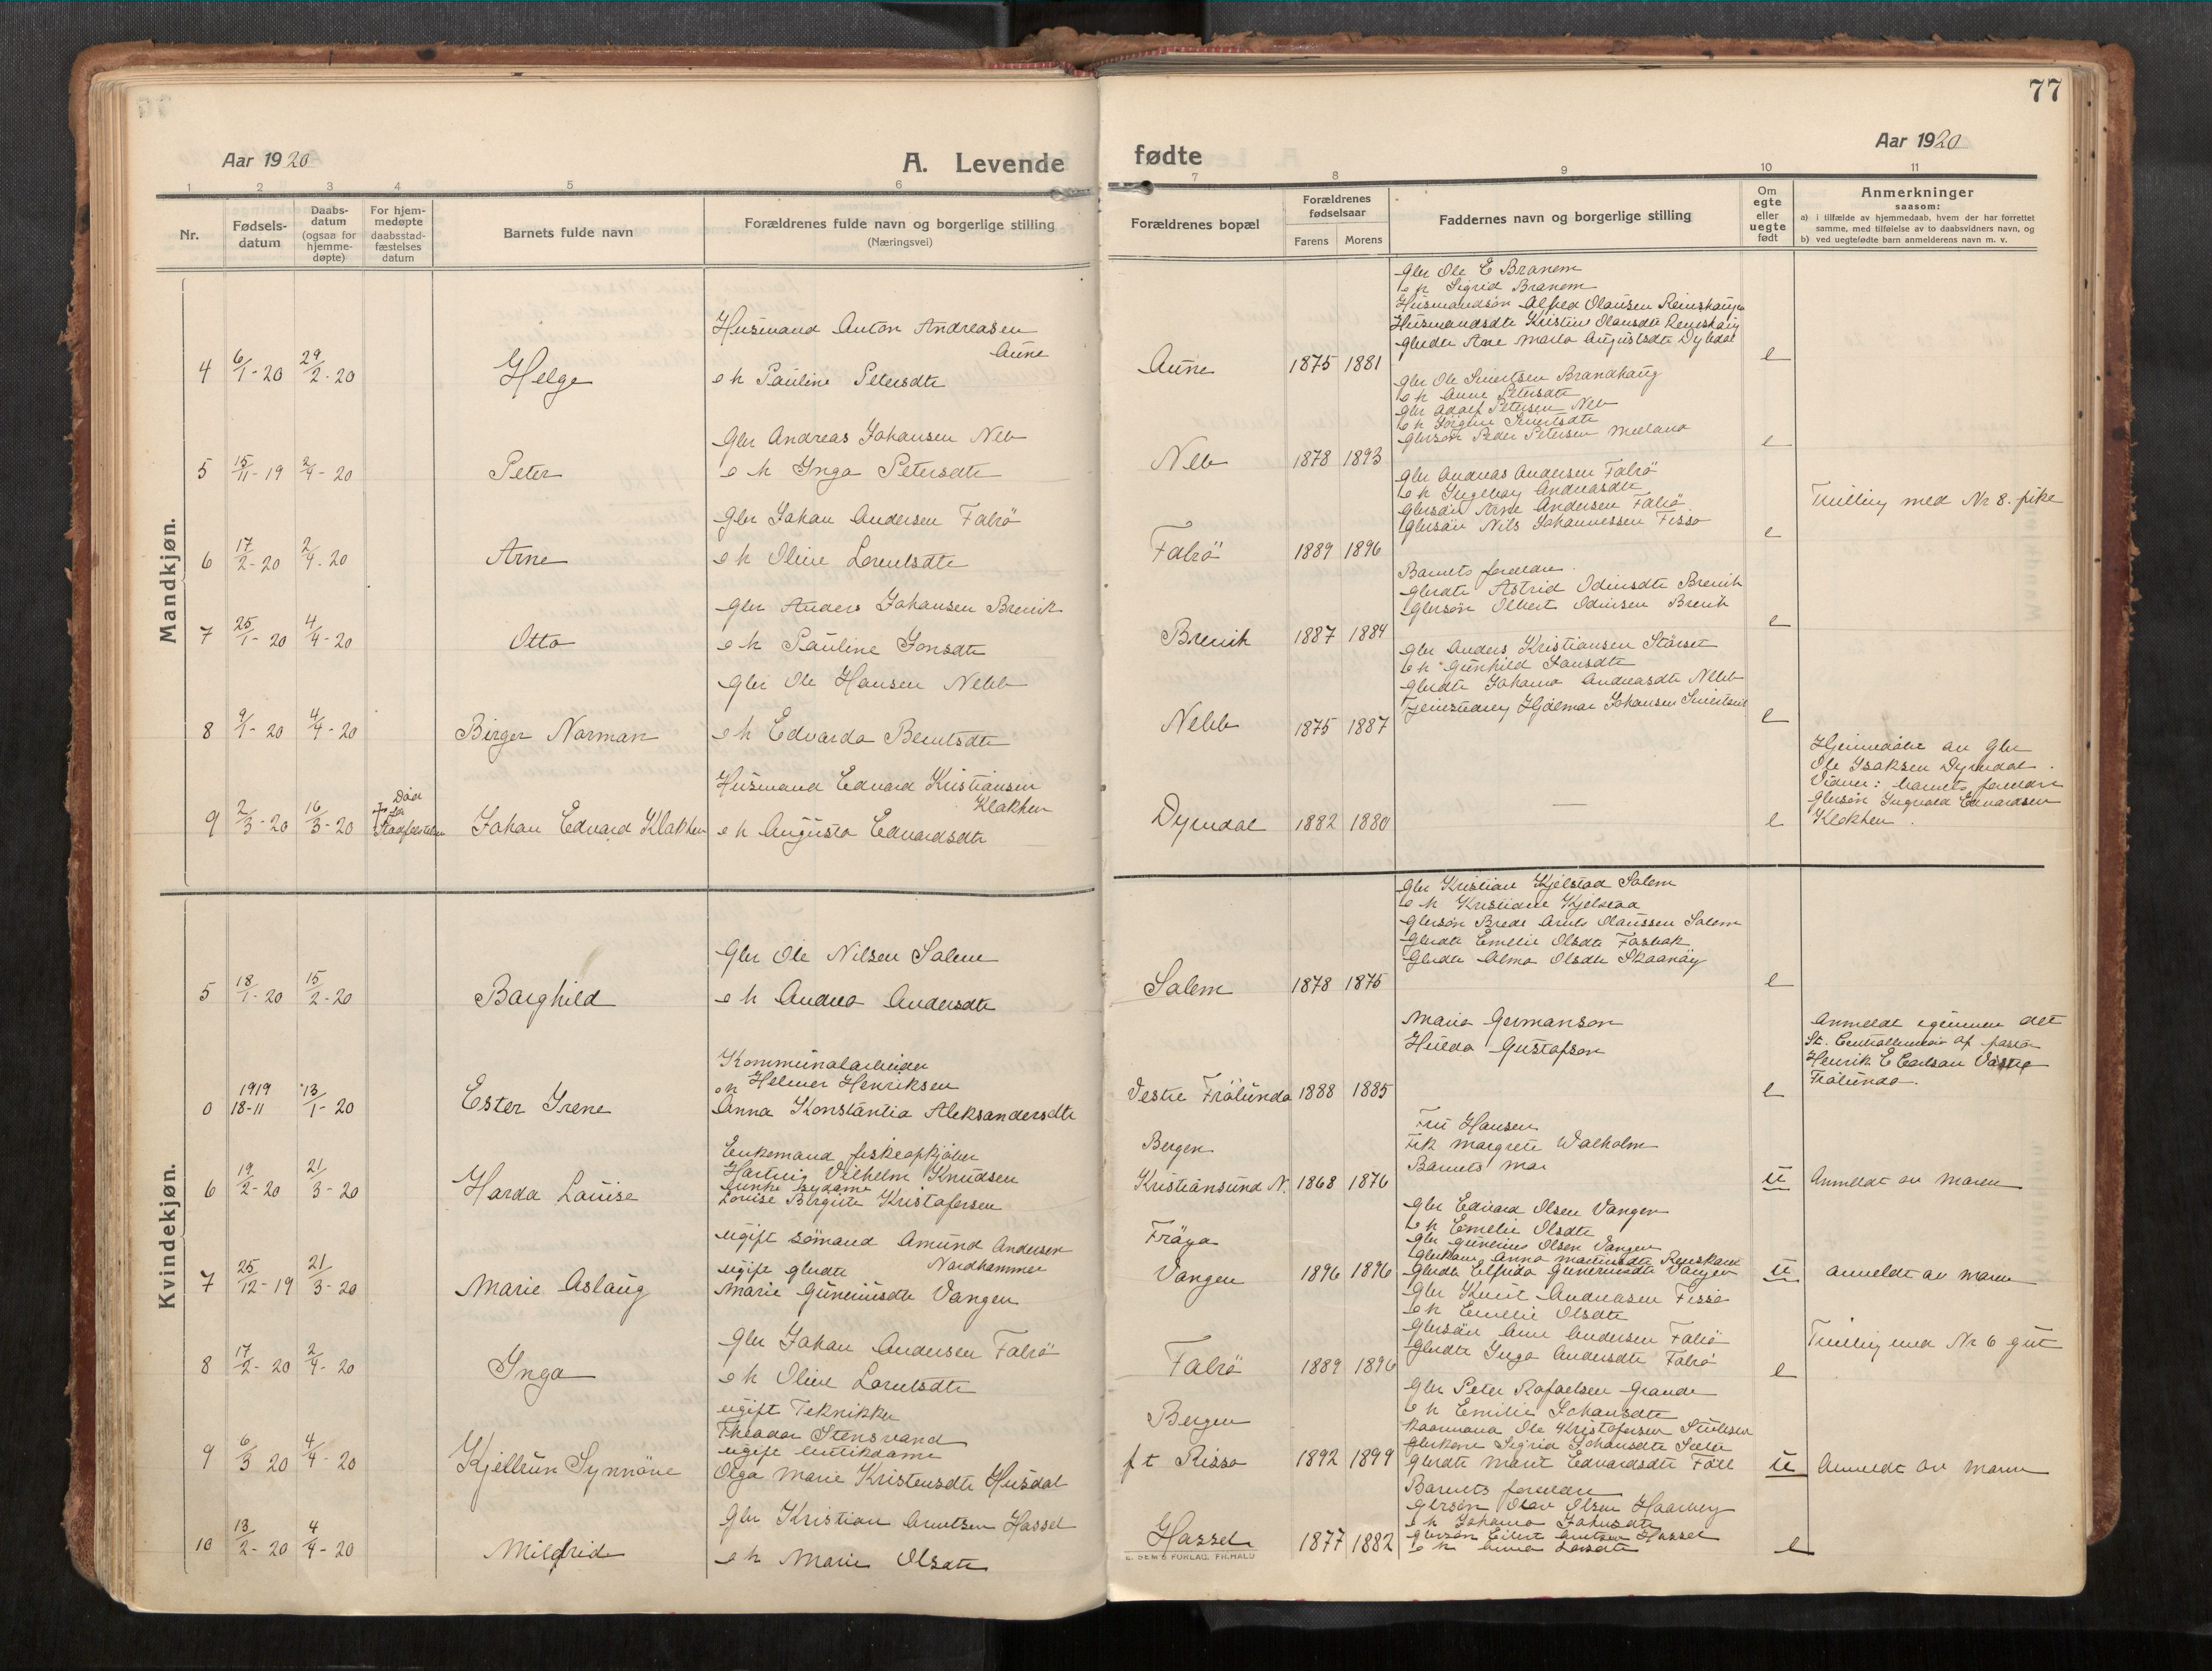 77
Aar 1920
A. Levende
1 2 3 4 5 6
Nr.
Fødsels-
datum
Daabs-
datum
(ogsaa for
hjemme-
døpte)
For hjem-
medøpte
daabsstad-
fæstelses
datum
Barnets fulde navn
Forældrenes fulde navn og borgerlige stilling
(Næringsvei)
Mandkjøn.
Husmand Anton Andreasen
Aune
4 6/1-20 29/2-20 Helge e h Pauline Petersdtr
Gbr Andreas Johansen Neb
5 15/11-19 2/4-20 Peter e h Inga Petersdtr
Gbr Johan Andersen Falrö
6 17/2-20 2/4-20 Arne e h Olive Lorentsdtr
Gbr Anders Johansen Brevik
7 25/1-20 4/4-20 Otto e h Pauline Jonsdtr
Gbr Ole Hansen Nebb
8 9/1-20 4/4-20 Birger Norman e h Edvarda Berntsdtr
Husmand Edvard Kristiansen
Klakken
Død
9 2/3-20 16/3-20 Johan Edvard Klakken e h Augusta Edvardsdtr
Kvindekjøn.
Gbr Ole Nilsen Salem
5 18/1-20 15/2-20 Borghild e h Andrea Andersdtr
Kommunalarbeider
Helmer Henriksen
0 1919 18-11 13/1-20 Ester Irene Anna Konstantia Aleksandersdtr
Enkemand fiskeopkjøber
Hartvig Vilhelm Knudsen
6 19/2-20 21/3-20 Harda Louise Louise Birgitte Kristofersen
ugift sömand Amund Andersen
Nordhammer
ugift gbrdtr
7 25/12-19 21/3-20 Marie Aslaug Marie Guneriusdtr Vangen
Gbr Johan Andersen Falrö
8 17/2-20 2/4-20 Inga e h Olive Lorentsdtr
ugift Tekniker
Theodor Stensvand
ugift butikdame
9 6/3 20 4/4-20 Kjellrun Synnöve Olga Marie Kristensdtr Husdal
Gbr Kristian Arntsen Hassel
10 13/2-20 4/4-20 Mildrid e h Marie Olsdtr
Aar 1920
fødte
7 8 9 10 11
Forældrenes bopæl
Forældrenes
fødselsaar
Farens Morens
Faddernes navn og borgerlige stilling
Om
egte
eller
uegte
født
Anmerkninger
saasom:
a) i tilfælde av hjemmedaab, hvem der har forrettet
samme, med tilføielse av to daabsvidners navn, og
b) ved uegtefødte barn anmelderens navn m. v.
Gbr Ole E Branem
e h Sigrid Branem
Husmandsön Alfred Olausen Reinshaug
Husmandsdtr Kristine Olausdtr Reinshaug
Gbrdtr Ane Marta Augustsdtr Dyrdal
Aune 1875 1881 e
Gbr Ole Sivertsen Brandhaug
e h Anne Petersdtr
Gbr Adolf Petersen Neb
e h Jörgine Sivertsdtr
Gbrsön Peder Petersen
Neb 1878 1893 e
Gbr Andreas Andersen Falrö
e h Ingeborg Andreasdtr
Gbrsön Arne Andersen Falrö
Gbrsön Nils Johannessen Fissa
Falrö 1889 1896 e
Tvilling med Nr 8. pike
Barnets foreldre
Gbrdtr Astrid Odinsdtr Brevik
Gbrsön Olbert Odinsen Brevik
Brevik 1887 1884 e
Gbr Anders Kristiansen Störset
e h Gunhild Jansdtr
Gbrdtr Johanna Andreasdtr Nebb
Hjalmar Johansen
Nebb 1875 1887 e
Dyrndal 1882 1880 — e
Hjemmedöbt av Gbr
Ole Isaksen Dyrndal.
Vidner: barnets foreldre
Gbrsön Ingvald Edvardsen
Klakken.
Gbr Kristian Kjelstad Salem
e h Kristiane Kjelstad
Gbrsön Brede Arnts Olaussen Salem
Gbrdtr Emelie Olsdtr
Gbrdtr Alma Olsdtr Skaanöy
Salem 1878 1875 e
Maria Germanson
Hulda Gustafson
Vestre Frölunda 1888 1885 e
Anmeldt igjennem det
St. af pastor
Henrik E Carlson Västre
Frölunda.
Fru Hansen
Frk Margrete Walholm
Barnets mor
Bergen
Kristiansund N. 1868 1876 U
Anmeldt av moren
Gbr Edvard Olsen Vangen
e h Emelie Olsdtr
Gbr Gunerius Olsen Vangen
Gbrkone Anna Martinsdtr
Gbrdtr Elfrida Guneriusdtr Vangen
Fröya
Vangen 1896 1896 U
anmeldt av moren
Gbr Knut Andreasen Fissa
e h Emelie Olsdtr
Gbrsön Arne Andersen Falrö
Gbrdtr Inga Andersdtr Falrö
Falrö 1889 1896 e
Tvilling med Nr 6 gut
Gbr Peter Rafaelsen Grande
e h Emilie Johansdtr
Ole Kristofersen
Gbrkone Sigrid Johansdtr
Gbrdtr Marit Edvardsdtr
Bergen
f t Rissa 1892 1899 U
Anmeldt av moren
Barnets foreldre
Gbrsön Olav Olsen
e h Johanna Johnsdtr
Gbrsön Eilert Arntsen Hassel
e h Anna Larsdtr
Hassel 1877 1882 e